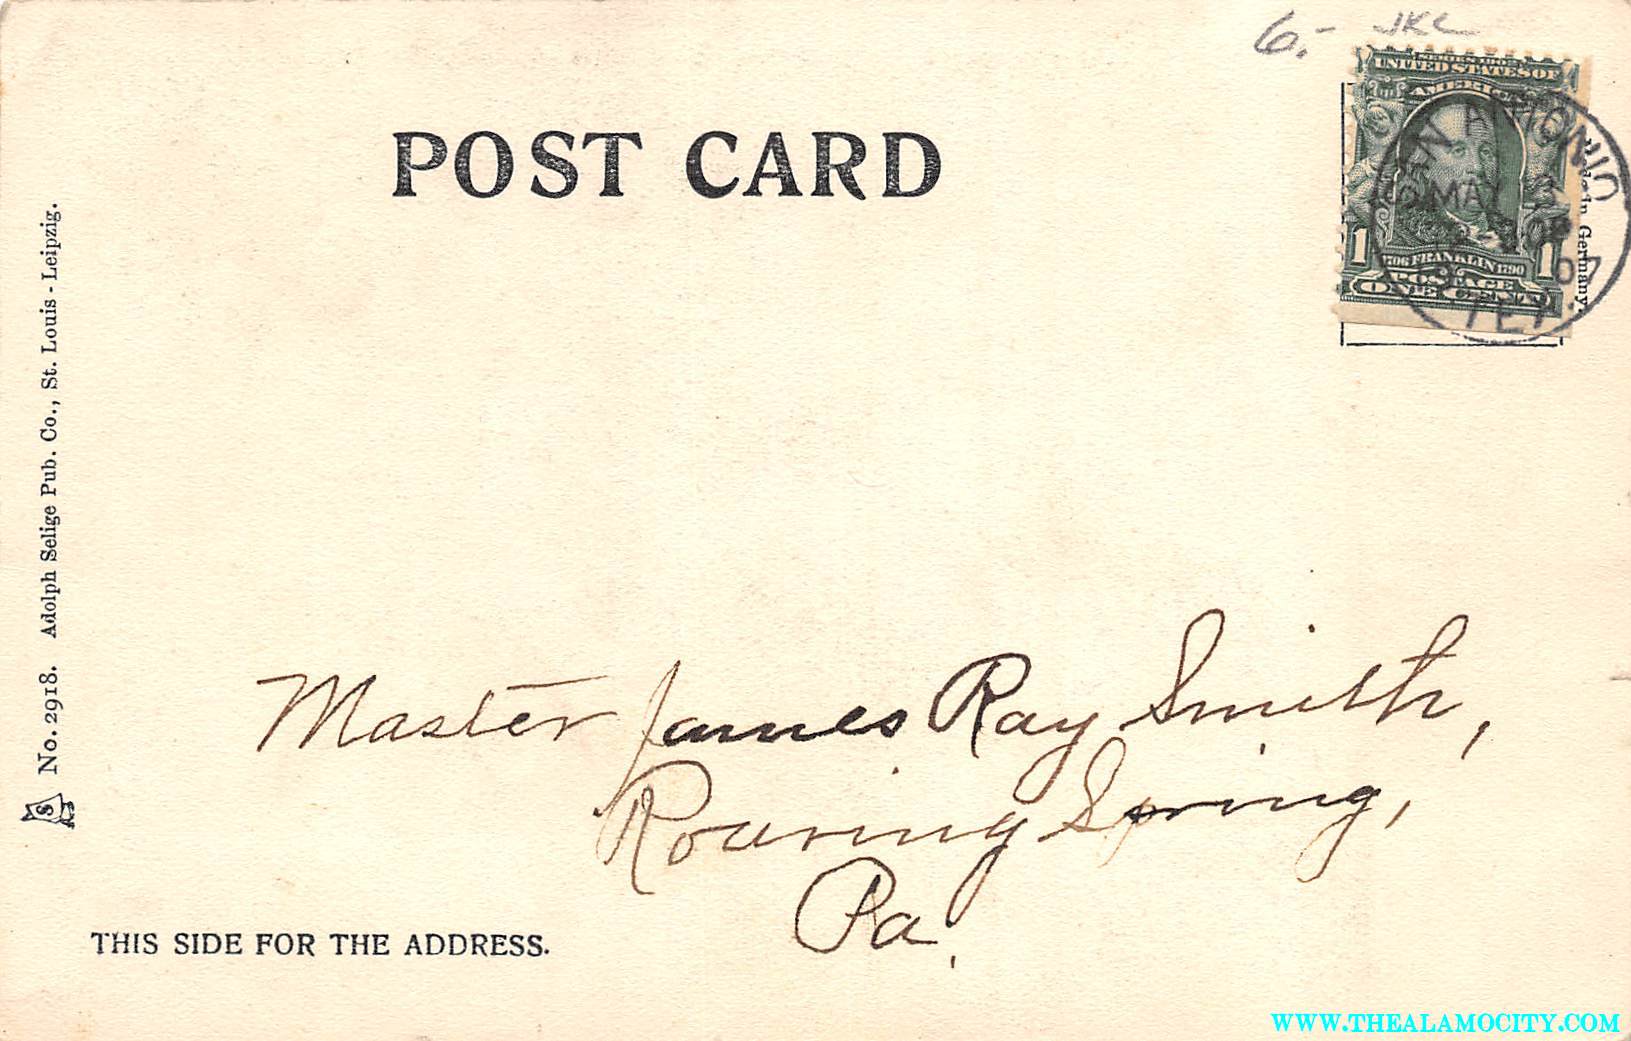 6.- JKC
POST CARD
SERIES 1902
UNITED STATES OF
AMERICA
1 1
1706 FRANKLIN 1790
POSTAGE
ONE CENT
SAN ANTONIO
MAY 3
07
TEX.
in Germany.
No. 2918. Adolph Selige Pub. Co., St. Louis - Leipzig.
S
Master James Ray Smith,
Roaring Spring,
Pa.
THIS SIDE FOR THE ADDRESS.
WWW.THEALAMOCITY.COM